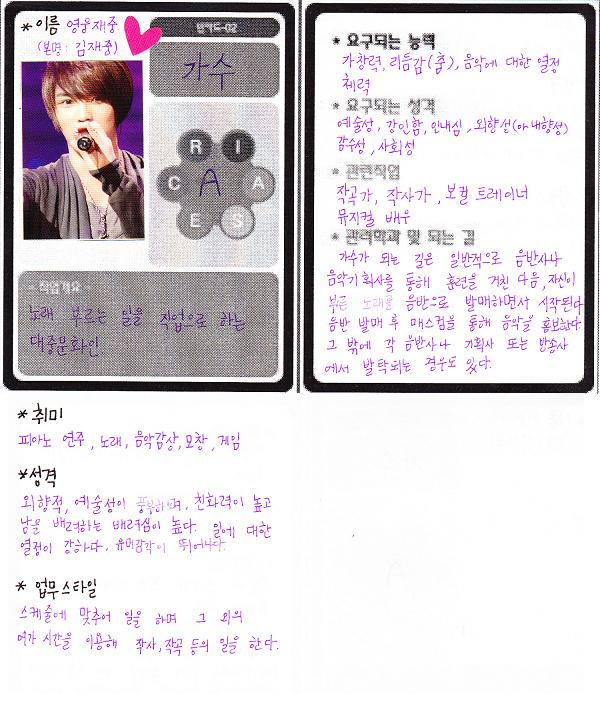 *이름 영웅재중
(본명: 김재중)
직업카드-02
가수
R I
C A A
E S
- 직업개요 -
노래 부르는 일을 직업으로 하는
대중문화인.
* 요구되는 능력
가창력, 리듬감(춤), 음악에 대한 열정
체력
* 요구되는 성격
예술성, 강인함, 인내심, 외향성(or내향성)
감수성, 사회성
* 관련직업
작곡가, 작사가, 보컬 트레이너
뮤지컬 배우
* 관련학과 및 되는 길
가수가 되는 길은 일반적으로 음반사나
음악기획사를 통해 훈련을 거친 다음, 자신이
부른 노래를 음반으로 발매하면서 시작된다
음반 발매 후 매스컴을 통해 음악을 홍보한다
그 밖에 각 음반사나 기획사 또는 방송사
에서 발탁되는 경우도 있다.
* 취미
피아노 연주, 노래, 음악감상, 모창, 게임
*성격
외향적, 예술성이 풍부하며, 친화력이 높고
남을 배려하는 배려심이 높다. 일에 대한
열정이 강하다. 유머감각이 뛰어나다.
* 업무스타일
스케줄에 맞추어 일을 하며 그 외의
여가 시간을 이용해 작사, 작곡 등의 일을 한다.